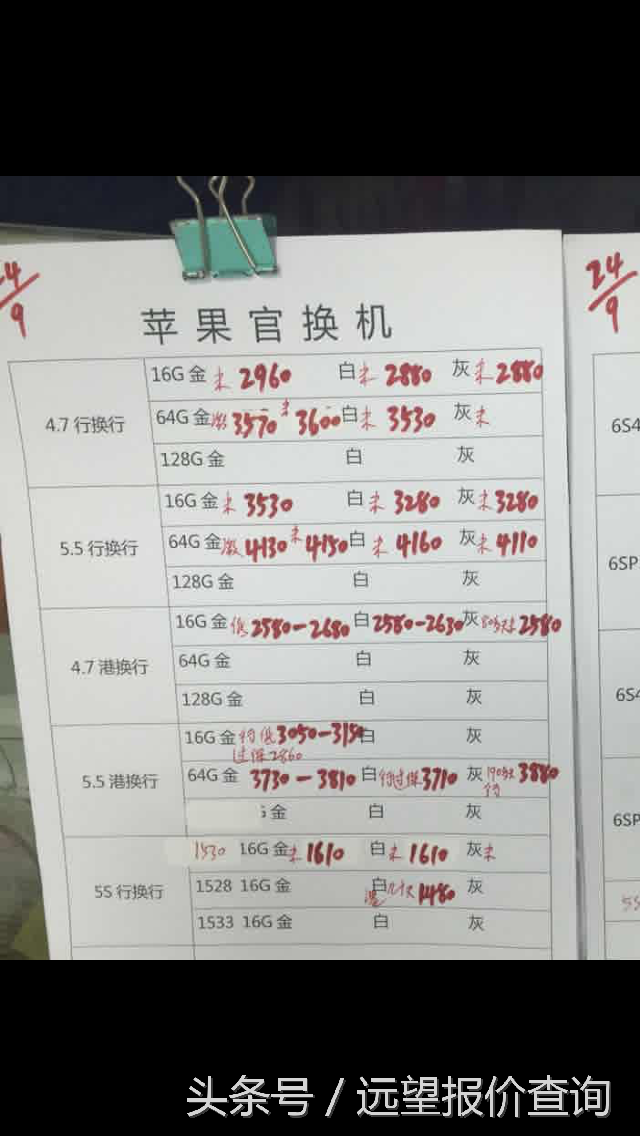 24/9
24/9
苹果官换机
4.7 行换行
16G 金 未 2960 白 未 2880 灰 未 2880
64G 金 激 3570 未 3600 白 未 3530 灰 未
128G 金 白 灰
5.5 行换行
16G 金 未 3530 白 未 3280 灰 未 3280
64G 金 激 4130 未 4150 白 未 4160 灰 未 4110
128G 金 白 灰
4.7 港换行
16G 金 低 2580-2680 白 2580-2630 灰 2580
64G 金 白 灰
128G 金 白 灰
5.5 港换行
16G 金 3050-3150 白 灰
过保 2860
64G 金 3730-3810 白 过保 3710 灰 3880
G 金 白 灰
5S 行换行
1530 16G 金 未 1610 白 未 1610 灰 未
1528 16G 金 白 港 1480 灰
1533 16G 金 白 灰
6S4
6SP
6S4
6SP
5S
头条号 / 远望报价查询